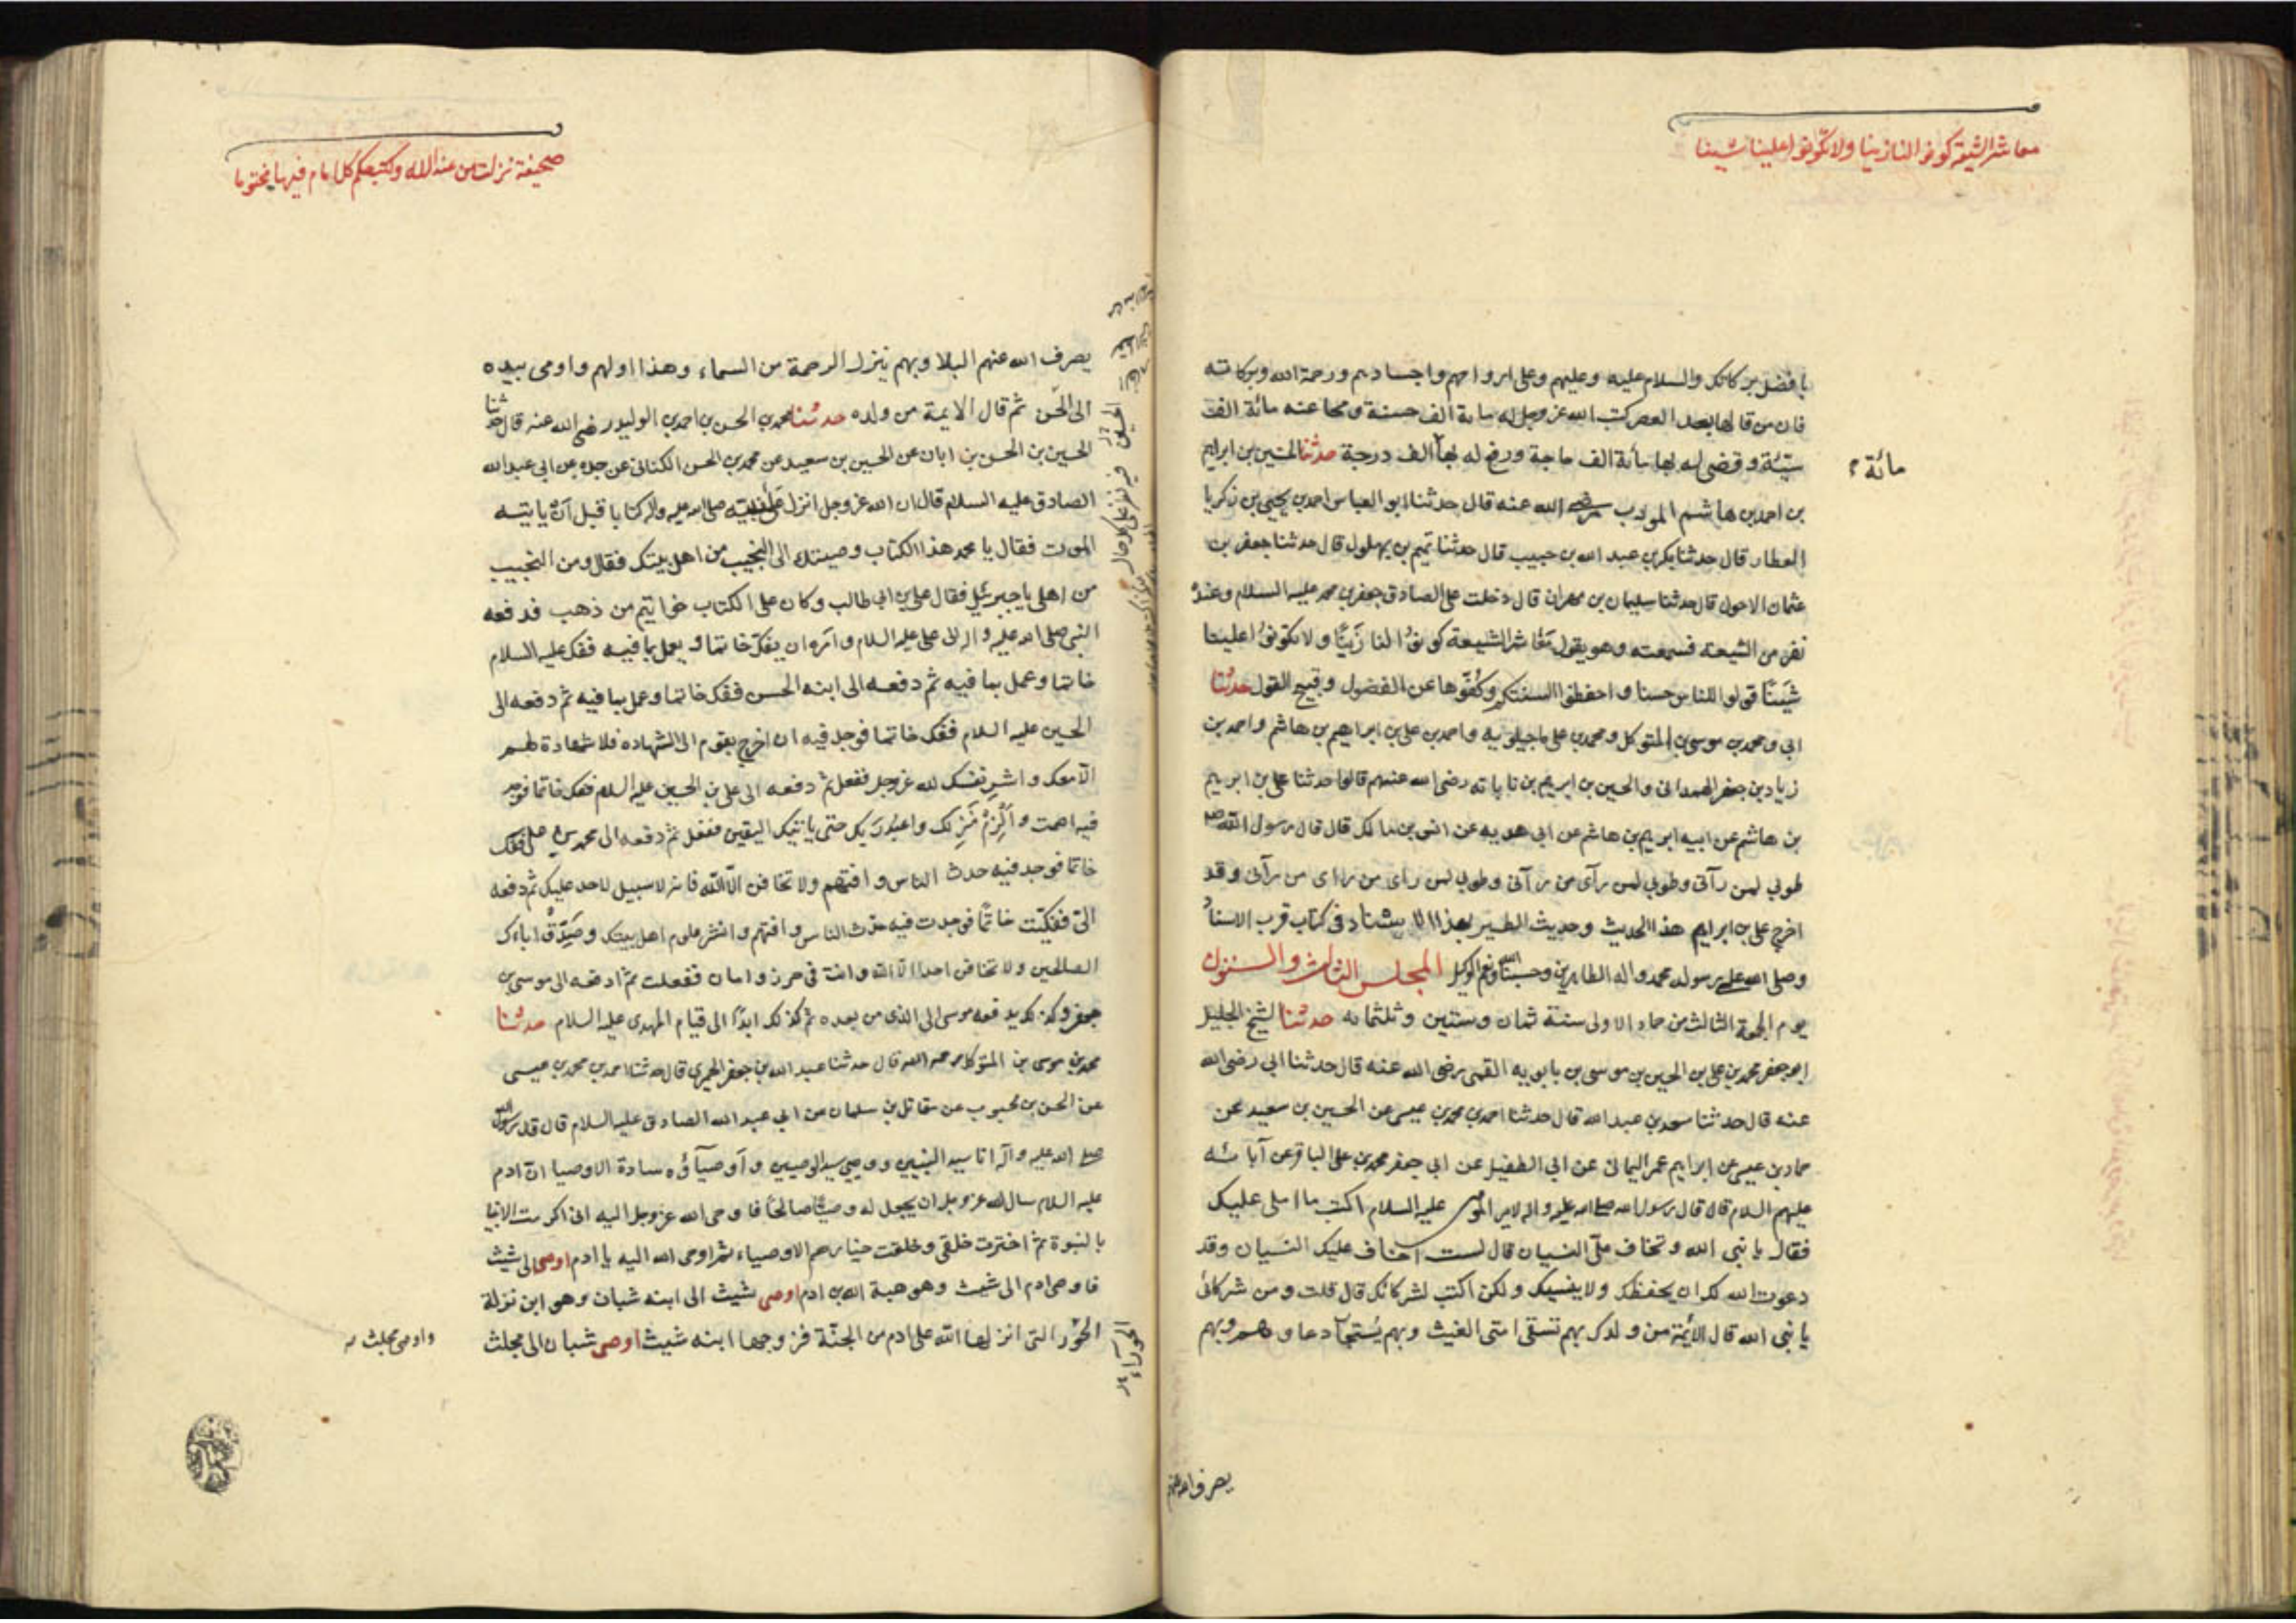 معاشر الشيعة كونوا لنا زينا ولا تكونوا علينا شينا
بافضل بركاتك والسلام عليه وعليهم وعلى ارواحهم واجسادهم ورحمة الله وبركاته
فان من قالها بعد العصر كتب الله عز وجل له ماية الف حسنة ومحا عنه مائة الف
سيئة وقضى له بها مائة الف حاجة ورفع له بها الف درجة حدثنا الحسين بن ابراهيم
مائة
بن احمد بن هاشم المودب رضي الله عنه قال حدثنا ابو العباس احمد بن يحيى بن زكريا
العطار قال حدثنا بكر بن عبد الله بن حبيب قال حدثنا تميم بن بهلول قال حدثنا جعفر بن
عثمان الاحول قال حدثنا سليمان بن مهران قال دخلت على الصادق جعفر بن محمد عليه السلام وعنده
نفر من الشيعة فسمعته وهو يقول مَعَاشر الشيعة كونوُا لنا زَينًا ولا تكونوُا علينا
شَينًا قولوا للناس حسنا واحفظوا السنتكم وكُفّوها عن الفضول وقبيح القول حدثنا
ابي ومحمد بن موسى بن المتوكل ومحمد بن علي ماجيلويه واحمد بن علي بن ابراهيم بن هاشم واحمد بن
زياد بن جعفر الهمداني والحسين بن ابرهيم بن تاتانه رضي الله عنهم قالوا حدثنا علي بن ابرهيم
بن هاشم عن ابيه ابرهيم بن هاشم عن ابي هدبه عن انس بن مالك قال قال رسول الله ص
طوبى لمن رآنى وطوبى لمن رآى من رآنى وطوبى لمن راى من راى من رآنى وقد
اخرج علي بن ابراهيم هذا الحديث وحديث الطير بهذا الاسناد في كتاب قرب الاسناد
وصلى الله على رسوله محمد واله الطاهرين وحسبنا الله ونعم الوكيل المجلس الثالث والستون
يوم الجمعة الثالث من جماد الاولى سنة ثمان وستين وثلثمائه حدثنا الشيخ الجليل
ابو جعفر محمد بن علي بن الحسين بن موسى بن بابويه القمي رضي الله عنه قال حدثنا ابي رضي الله
عنه قال حدثنا سعد بن عبد الله قال حدثنا احمد بن محمد بن عيسى عن الحسين بن سعيد عن
حماد بن عيسى عن ابراهيم عمر اليماني عن ابي الطفيل عن ابي جعفر محمد بن علي الباقر عن آبائه
عليهم السلام قال قال رسول الله صلى الله عليه واله لامير المومنين عليه السلام اكتب ما املي عليك
فقال يا نبي الله وتخاف عليّ النسيان قال لست اخاف عليك النسيان وقد
دعوت الله لك ان يحفظك ولا ينسيك ولكن اكتب لشركائك قال قلت ومن شركائي
يا نبي الله قال الأئمة من ولدك بهم تسقى امتي الغيث وبهم يُستجاب دعاوهم وبهم
يصرف الله عنهم
صحيفة نزلت من عند الاله ولكتبكم كل امام فيها مختوما
يصرف الله عنهم البلا وبهم ينزل الرحمة من السماء وهذا اولهم واومى بيده
الى الحَسن ثم قال الايمة من ولده حدثنا محمد بن الحسن بن احمد بن الوليد رضي الله عنه قال حدثنا
الحسين بن الحسن بن ابان عن الحسين بن سعيد عن محمد بن الحسن الكناني عن جده عن ابي عبد الله
الصادق عليه السلام قال ان الله عز وجل انزل على نبيه صلى الله عليه واله كتابا قبل ان ياتيه
الموت فقال يا محمد هذا الكتاب وصيتك الى النجيب من اهل بيتك فقال ومن النجيب
من اهلي يا جبرئيل فقال علي بن ابي طالب وكان على الكتاب خواتيم من ذهب فدفعه
النبي صلى الله عليه واله الى علي عليه السلام وامَره ان يفك خاتما ويعمل بما فيه ففك عليه السلام
خاتما وعمل بما فيه ثم دفعه الى ابنه الحسن ففك خاتما وعمل بما فيه ثم دفعه الى
الحسين عليه السلام ففك خاتما فوجد فيه ان اخرج بقوم الى الشهاده فلا شهادة لهم
الا معك واشرِ نفسك لله عز وجل ففعل ثم دفعه الى علي بن الحسين عليه السلام ففك خاتما فوجد
فيه اصمت والزم منزلك واعبد ربك حتى ياتيك اليقين ففعل ثم دفعه الى محمد بن علي ففك
خاتما فوجد فيه حدث الناس وافتهم ولا تخافن الا الله فانه لا سبيل لاحد عليك ثم دفعه
الىّ ففككت خاتمًا فوجدت فيه حدّث الناس وافتهم وانشر علوم اهل بيتك وصَدِّقْ اباءك
الصالحين ولا تخافن احدا الا الله وانت في حرز وامان ففعلت ثم ادفعه الى موسى بن
جعفر وكذلك يدفعه موسى الى الذي من بعده ثم كذلك ابدًا الى قيام المهدى عليه السلام حدثنا
محمد بن موسى بن المتوكل رحمه الله قال حدثنا عبد الله بن جعفر الحميرى قال حدثنا احمد بن محمد بن عيسى
عن الحسن بن محبوب عن مقاتل بن سلمان عن ابي عبد الله الصادق عليه السلام قال قال رسول الله
صلى الله عليه وآله انا سيد النبيين ووصيي سيد الوصيين واَوصيآؤه سادة الاوصيا ان ادم
عليه السلام سال الله عز وجل ان يجعل له وصيًّا صالحًا فاوحى الله عز وجل اليه انى اكرمت الانبيا
بالنبوة ثم اخترت خلقي وخلقت خيارهم الاوصياء ثم اوحى الله اليه يا ادم اوصى الى شيث
فاوصى ادم الى شيث وهو هبة الله بن ادم اوصى شيث الى ابنه شبان وهو ابن نزلة
الحَوْر التى انزلها اللّه على ادم من الجنّة فزوجها ابنه شيث اوصى شبان الى مجلث
الحورآء
واوصى مجلث